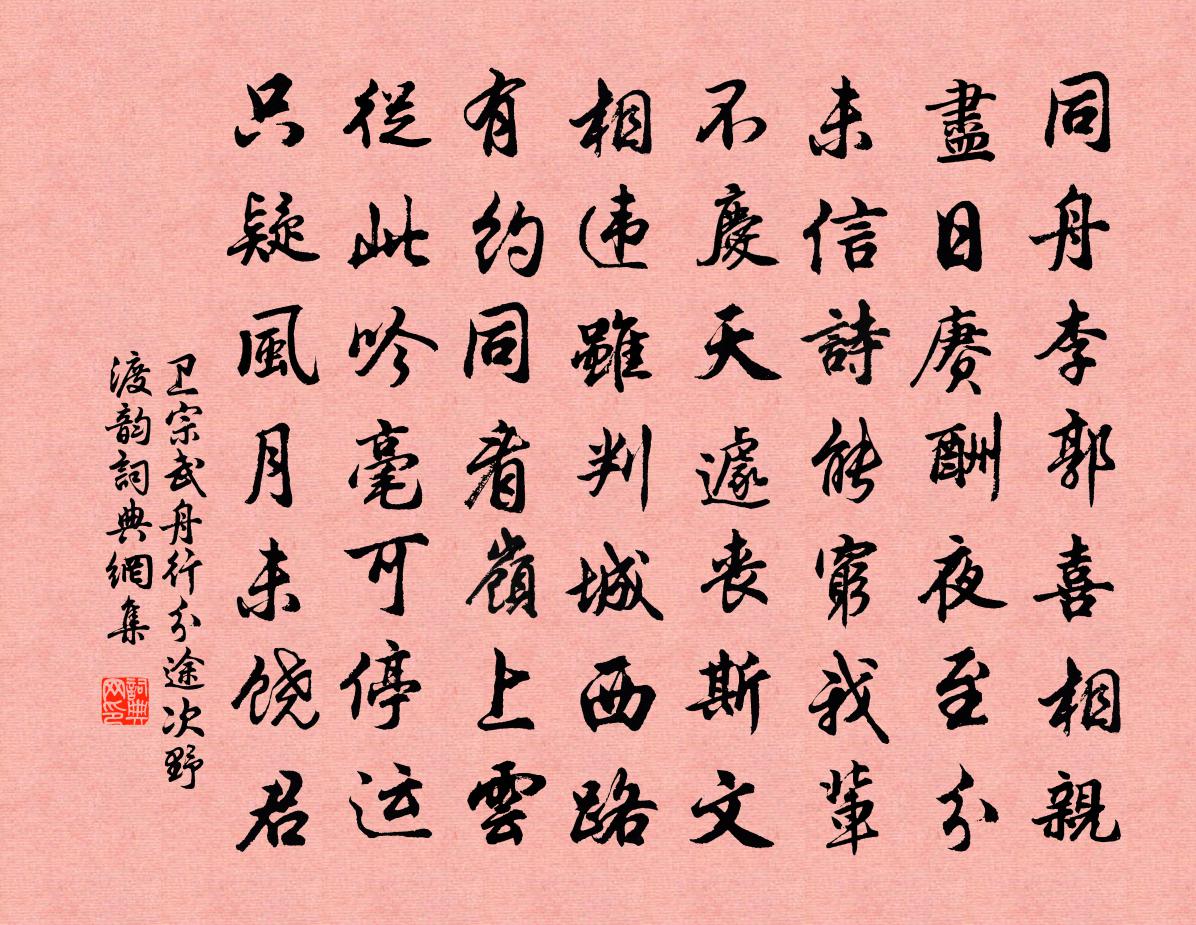 同舟李郭喜相親
盡日赓酬夜至分
未信詩能窮我輩
不慶天遽丧斯文
相违雖判城西路
有約同看嶺上雲
從此吟毫可停运
只疑風月未饶君
卫宗武舟行分途次野
渡韵詞典網集
詞典网印